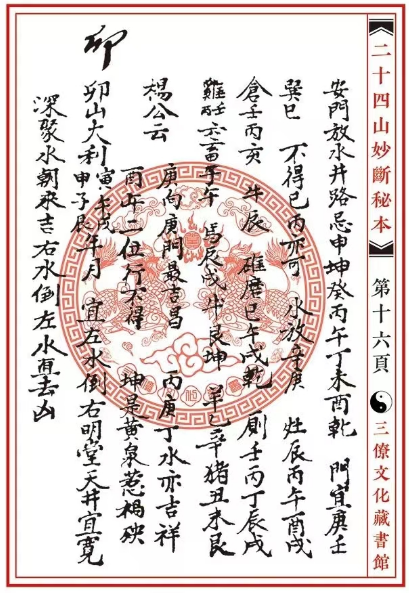 二十四山妙斷秘本
第十六頁
三僚文化藏書館
卯
安門放水井路忌申坤癸丙午丁未酉乾　門宜庚壬
巽巳　不得已丙亦可　水放辛庚　灶辰丙午酉戌
倉壬丙亥　井辰　碓磨巳午戌乾　厠壬丙丁辰戌
雞　六畜子午　馬辰戌　牛艮坤　羊乙辛猪丑未艮
楊公云　庚向庚門最吉昌　丙庚丁水亦吉祥
酉午二位行不得　坤是黃泉惹禍殃
卯山大利寅午戌申子辰年月　宜左水倒右明堂天井宜寬
深聚水朝來吉右水倒左水直去凶